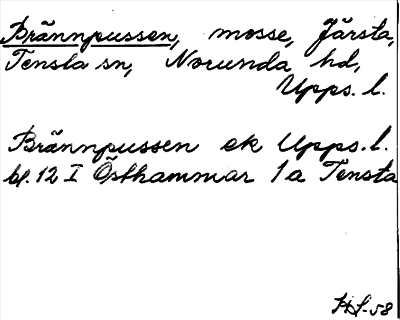 Brännpussen, mosse, Järsta,
Tensta sn, Norunda hd,
Upps. l.
Brännpussen ek Upps. l.
bl. 12 I Östhammar 1a Tensta
HS-58